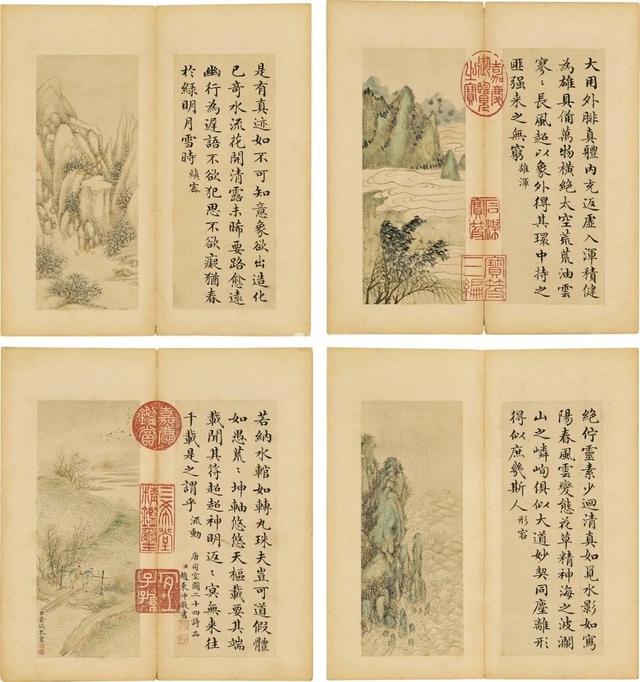 是有真迹如不可知意象欲出造化
已奇水流花開清露未晞要路愈遠
幽行為遲語不欲犯思不欲癡猶春
於綠明月雪時 縝密
大用外腓真體內充返虛入渾積健
為雄具備萬物橫絕太空荒荒油雲
寥〻長風超以象外得其環中持之
匪強來之無窮 雄渾
嘉慶御覽之寶
石渠寶笈
寶笈三編
若納水輨如轉丸珠夫豈可道假體
如愚荒〻坤軸悠悠天樞載要其端
載聞其符超超神明返〻冥無來往
千載是之謂乎 流動 唐司空圖二十四詩品
臣趙秉沖敬書
嘉慶鑑賞
三希堂精鑑璽
宜子孫
臣黃鉞恭畫
絕佇靈素少迴清真如覓水影如寫
陽春風雲變態花草精神海之波瀾
山之嶙峋俱似大道妙契同塵離形
得似庶幾斯人 形容